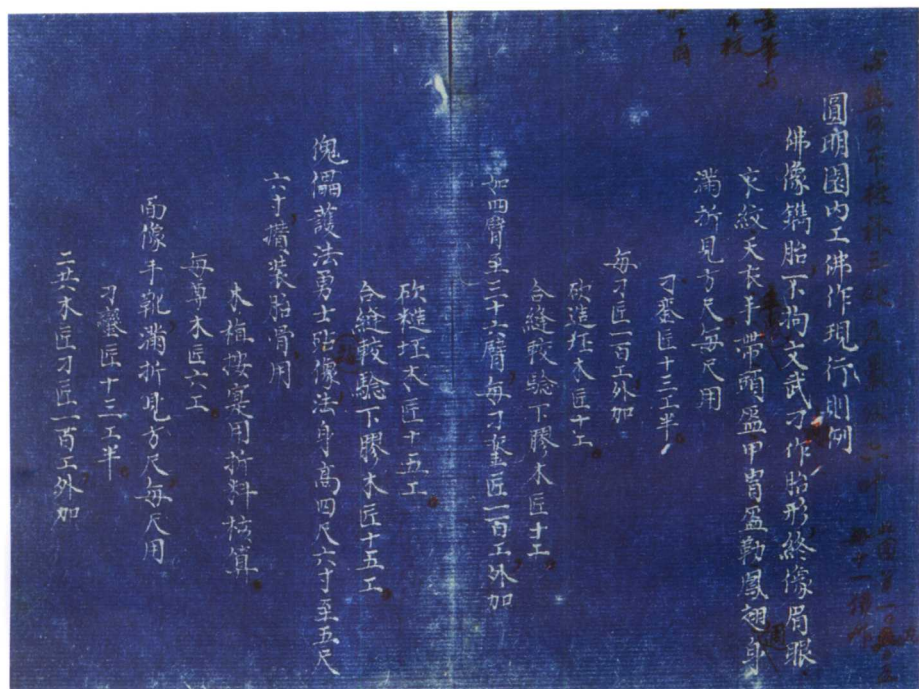 圓明園内工佛作現行則例
佛像鐫胎不拘文武刁作胎形終像眉眼
衣紋天衣手帶頭盔甲胄盔勒鳳翅身
滿折見方尺每尺用
刁鑿匠十三工半
每刁匠一百工外加
砍造坯木匠十工
合縫較驗下膠木匠十工
如四臂至三十六臂每刁鑿匠一百工外加
砍糙坯木匠十五工
合縫較驗下膠木匠十五工
傀儡護法勇士站像法身高四尺六寸至五尺
六寸攢裝胎骨用
木植按寔用折料核算
每尊木匠六工
面像手靴滿折見方尺每尺用
刁鑿匠十三工半
木匠刁匠一百工外加